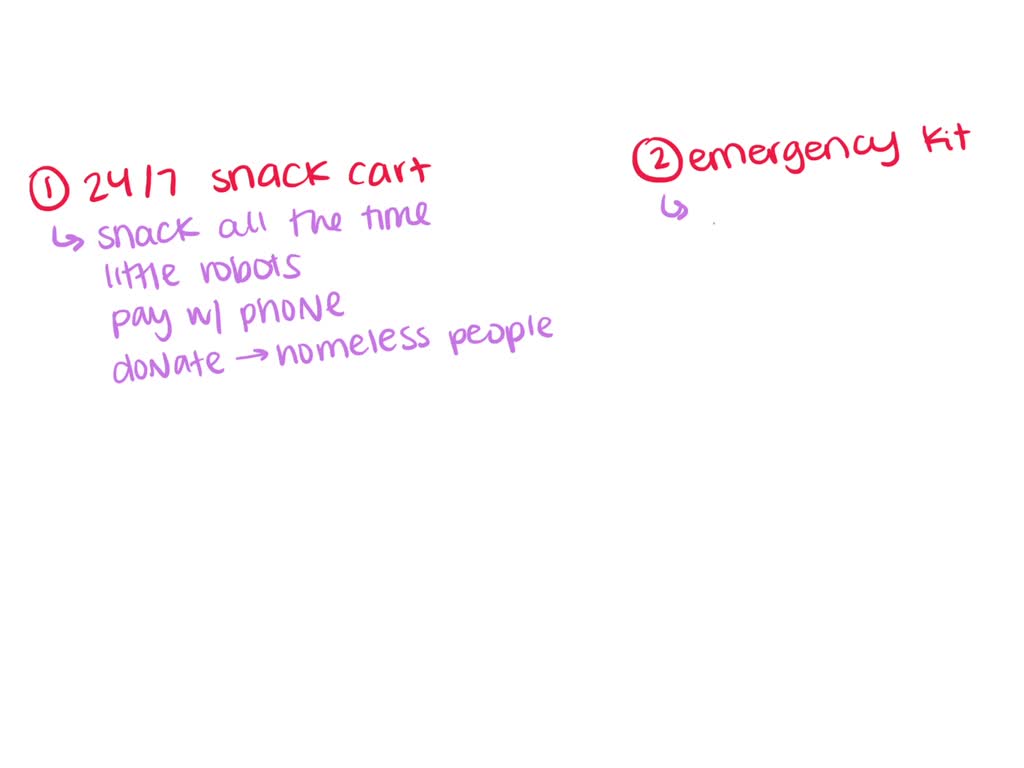 ① 24/7 snack cart
↳ snack all the time
little robots
pay w/ phone
donate → homeless people
② emergency kit
↳